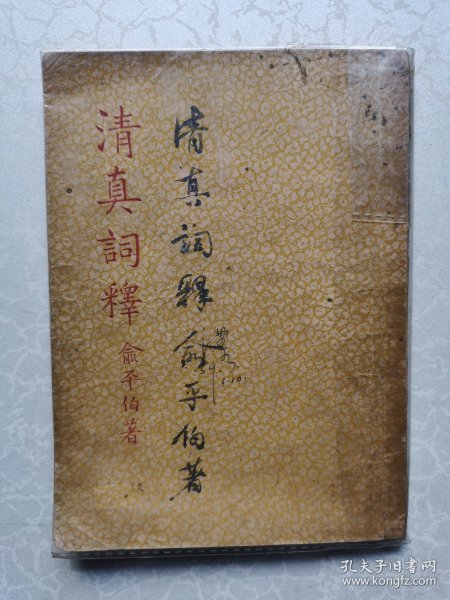 清真詞釋 俞平伯著
清真詞釋 俞平伯著
1.10
孔夫子旧书网
www.kongfz.com